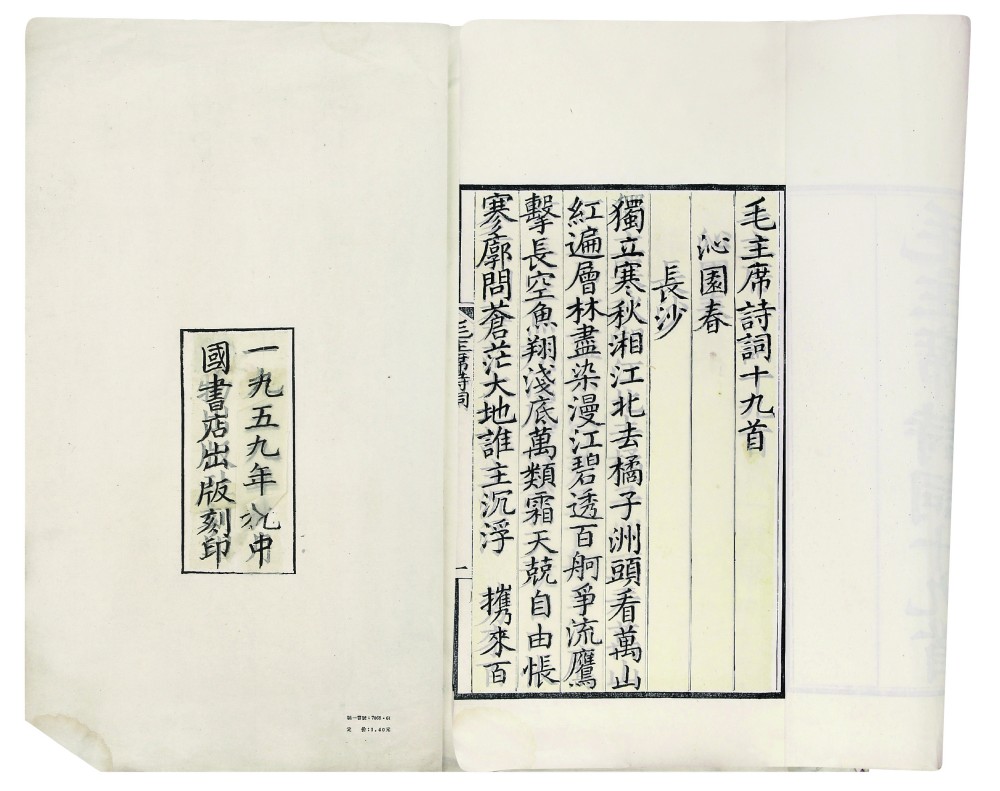 毛主席詩詞十九首
沁園春
長沙
獨立寒秋湘江北去橘子洲頭看萬山
紅遍層林盡染漫江碧透百舸爭流鷹
擊長空魚翔淺底萬類霜天競自由悵
寥廓問蒼茫大地誰主沉浮　攜來百
毛主席詩詞
一
一九五九年 中
國書店出版刻印
定　價:3.40元